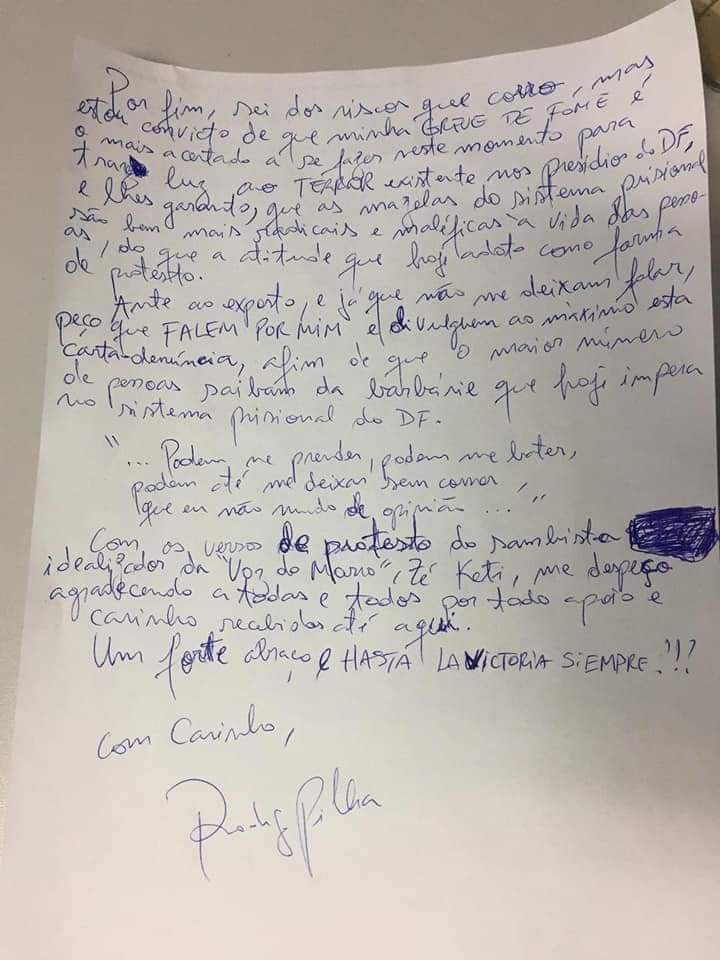 Por fim, sei dos riscos que corro, mas
estou convicto de que minha GREVE DE FOME é
o mais acertado a se fazer neste momento para
trazer luz ao TERROR existente nos presídios do DF,
e lhes garanto, que as mazelas do sistema prisional
são bem mais radicais e maléficas à vida das pesso-
as, do que a atitude que hoje adoto como forma
de protesto.
Ante ao exposto, e já que não me deixam falar,
peço que FALEM POR MIM e divulguem ao máximo esta
Carta-denúncia, afim de que o maior número
de pessoas saibam da barbárie que hoje impera
no sistema prisional do DF.
"... Podem me prender, podem me bater,
podem até me deixar sem comer,
que eu não mudo de opinião ..."
Com os versos de protesto do sambista
idealizador da "Voz do Morro", Zé Keti, me despeço
agradecendo a todas e todos por todo apoio e
carinho recebidos até aqui.
Um forte abraço, e HASTA LA VICTORIA SIEMPRE!!!
Com Carinho,
Rodrigo Pilha